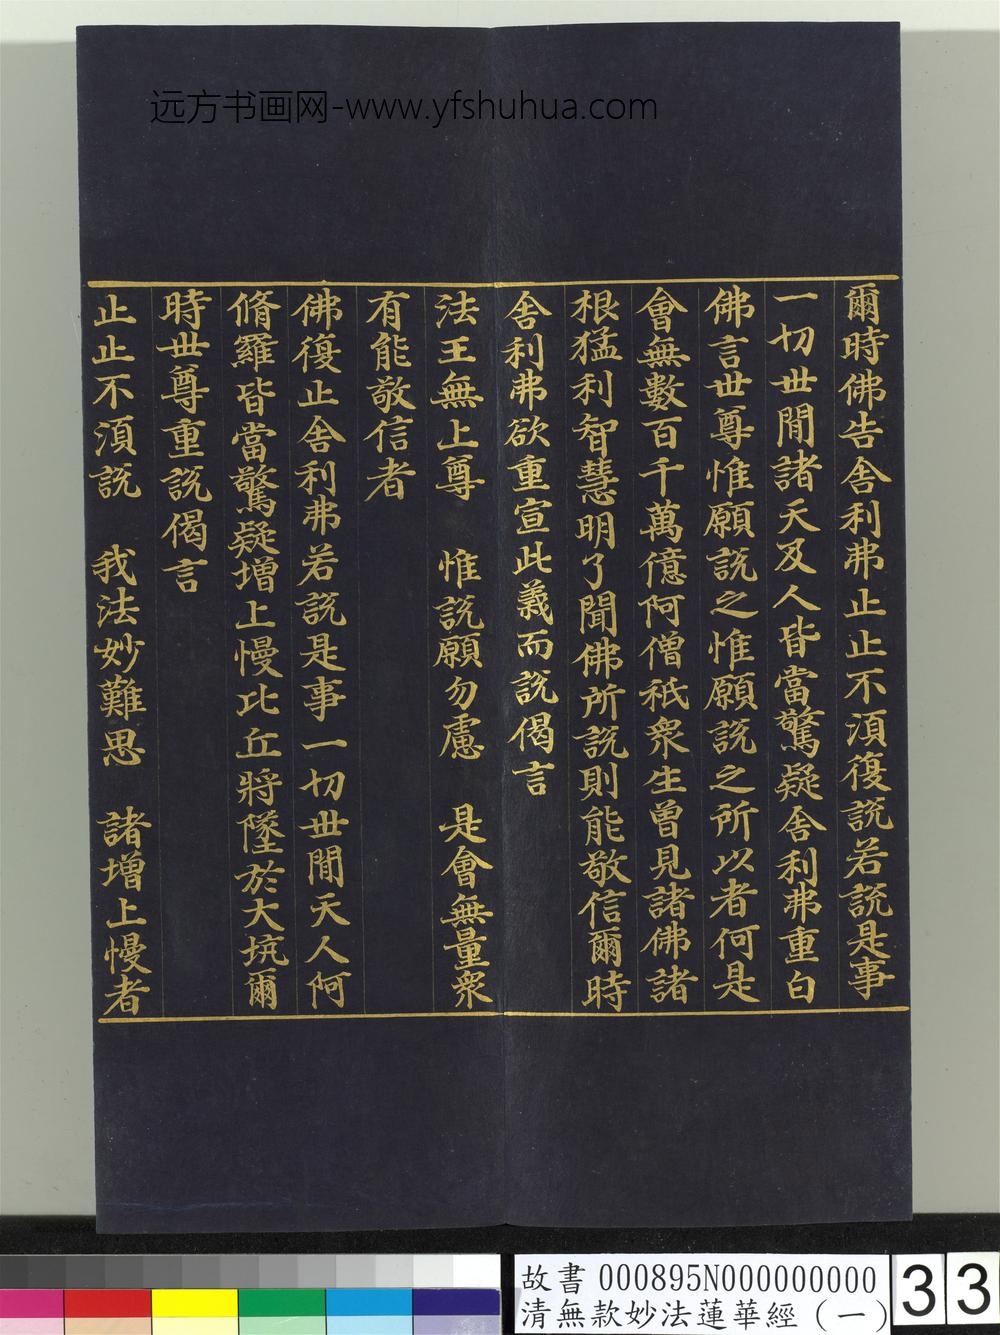 远方书画网-www.yfshuhua.com
爾時佛告舍利弗止止不須復説若説是事
一切世間諸天及人皆當驚疑舍利弗重白
佛言世尊惟願説之惟願説之所以者何是
會無數百千萬億阿僧祇衆生曾見諸佛諸
根猛利智慧明了聞佛所説則能敬信爾時
舍利弗欲重宣此義而説偈言
法王無上尊　惟説願勿慮　是會無量衆
有能敬信者
佛復止舍利弗若説是事一切世間天人阿
脩羅皆當驚疑增上慢比丘將墜於大坑爾
時世尊重説偈言
止止不須説　我法妙難思　諸增上慢者
故書 000895N000000000
清無款妙法蓮華經（一）
33